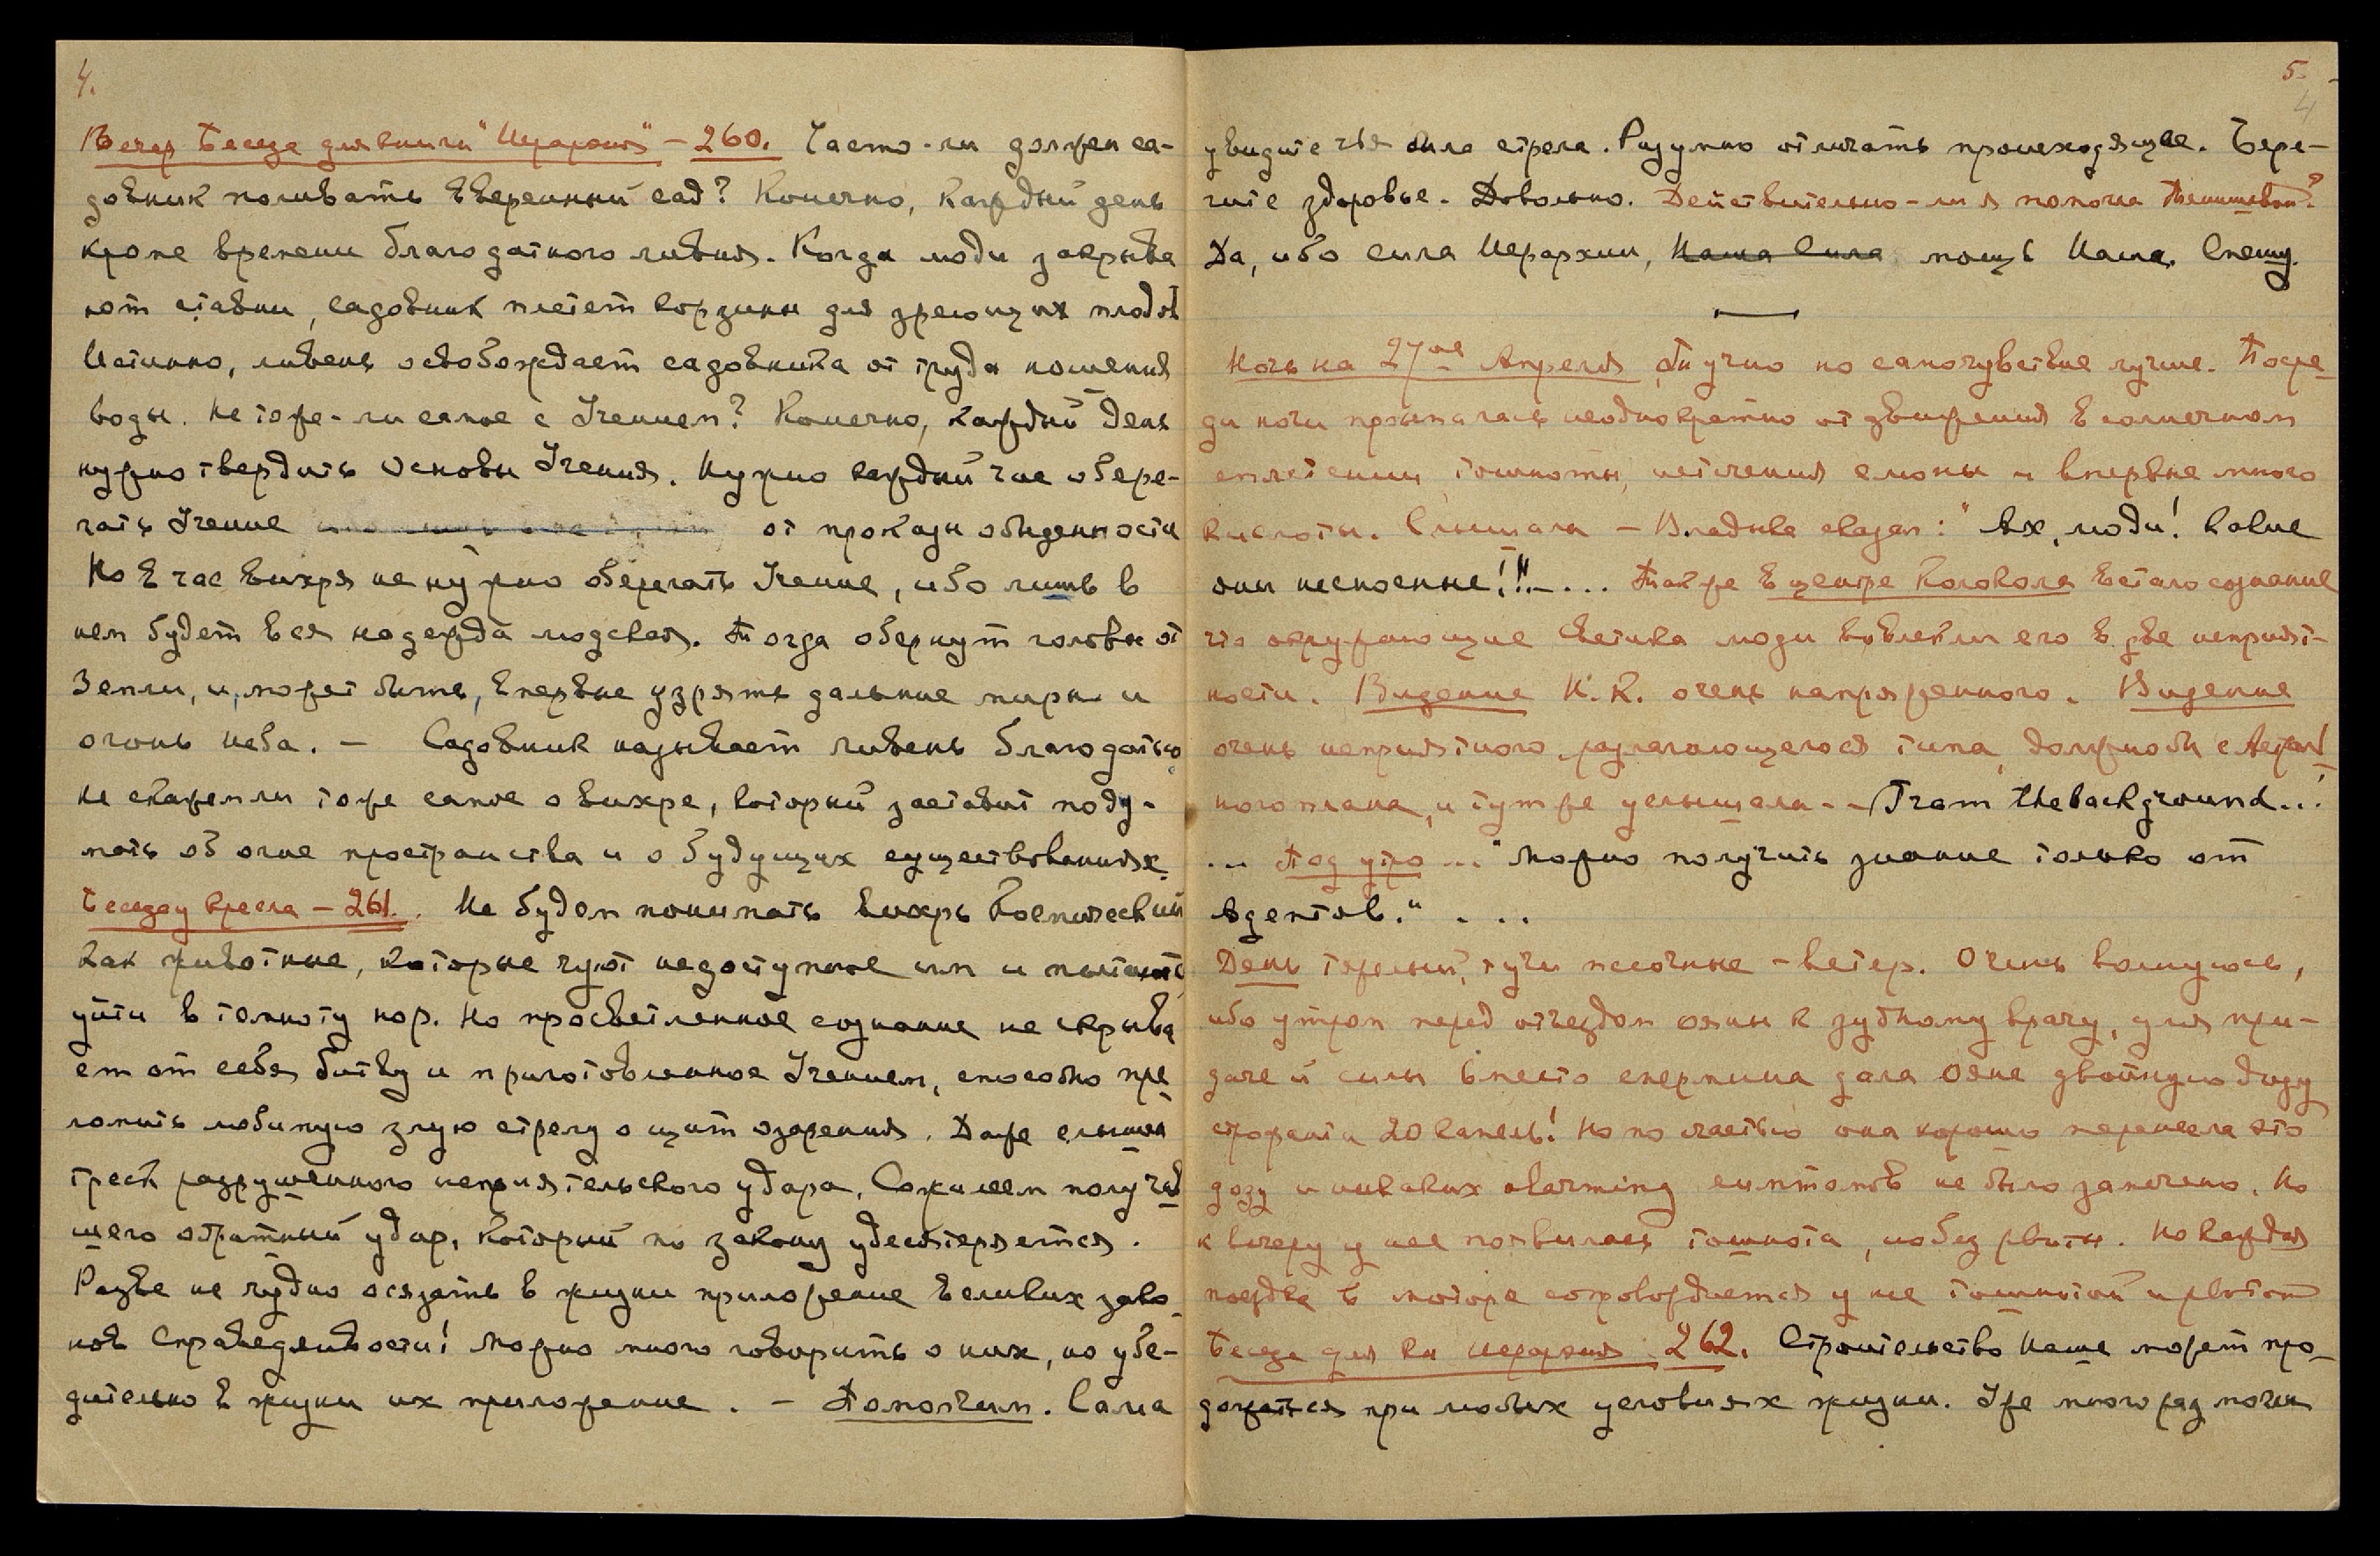 4.
Вечер Беседа для книги "Иерархия" – 260. Часто-ли должен са-
довник поливать вверенный сад? Конечно, каждый день
кроме времени благодатного ливня. Когда люди закрыва
ют ставни, садовник плетет корзины для зреющих плодов
Истинно, ливень освобождает садовника от труда ношения
воды. Не то же-ли самое с Учением? Конечно, каждый день
нужно твердить Основы Учения. Нужно каждый час обере-
гать Учение от проказы обыденности
Но в час вихря не нужно оберегать Учение, ибо лишь в
нем будет вся надежда людская. Тогда обернут головы от
Земли, и, может быть, впервые узрять дальние миры и
огонь неба. – Садовник называет ливень благодатью
не скажем ли тоже самое о вихре, который заставит поду-
мать об огне пространства и о будущих существованиях.
Беседа у кресла – 261. Не будем понимать вихрь Космический
как животные, которые чуют недоступное им и пытаются
уйти в темноту нор. Но просветленное сознание не скрыва
ет от себя битву и приготовленное Учением, способно пре
ломить любимую злую стрелу о щит озарения. Даже слышен
треск разрушенного неприятельского удара. Сожалеем получив
шего обратный удар, который по закону удесятеряется.
Разве не чудно осязать в жизни приложение великих зако
нов Справедливости! Можно много говорить о них, но убе-
дительно в жизни их приложение. – Помолчим. Сама
5.
4
увидите чья была стрела. Разумно отличать происходящее. Бере-
гите здоровье. Довольно. Действительно-ли я помогла
Да, ибо сила Иерархии, Наша Сила мощь Наша. Спешу.
Ночь на 27ое Апреля душно но самочувствие лучше. Посре
ди ночи просыпалась неоднократно от движения в солнечном
сплетении, тошноты, истечения слюны и впервые много
кислоты. Слышала – Владыка сказал: "Ах, люди! Какие
они несносные!!!–... Также в центре Колокола встало сознание
что окружающие Светика люди вовлекли его в две неприят-
ности. Видение Н.К. очень напряженного. Видение
очень неприятного, разлагающегося типа, должно быть с Астраль
ного плана, и тут же услышала – –"From the background...
... Под утро ... "Можно получить знание только от
Адептов." ....
День тяжелый, тучи песочные – ветер. Очень волнуюсь,
ибо утром перед отъездом Ояны к зубному врачу, для при-
дачей силы вместо спермина дала Ояне двойную дозу
строфанта 20 капель! Но по счастью она хорошо перенесла это
дозу и никаких alarming симптомов не было замечено. Но
к вечеру у нее появилась тошнота, но без рвоты. Но каждая
поездка в моторе сопровождается у нее тошнотой и рвотой
Беседа для кн Иерархия 262. Строительство Наше может про_
должаться при любых условиях жизни. Уже много раз